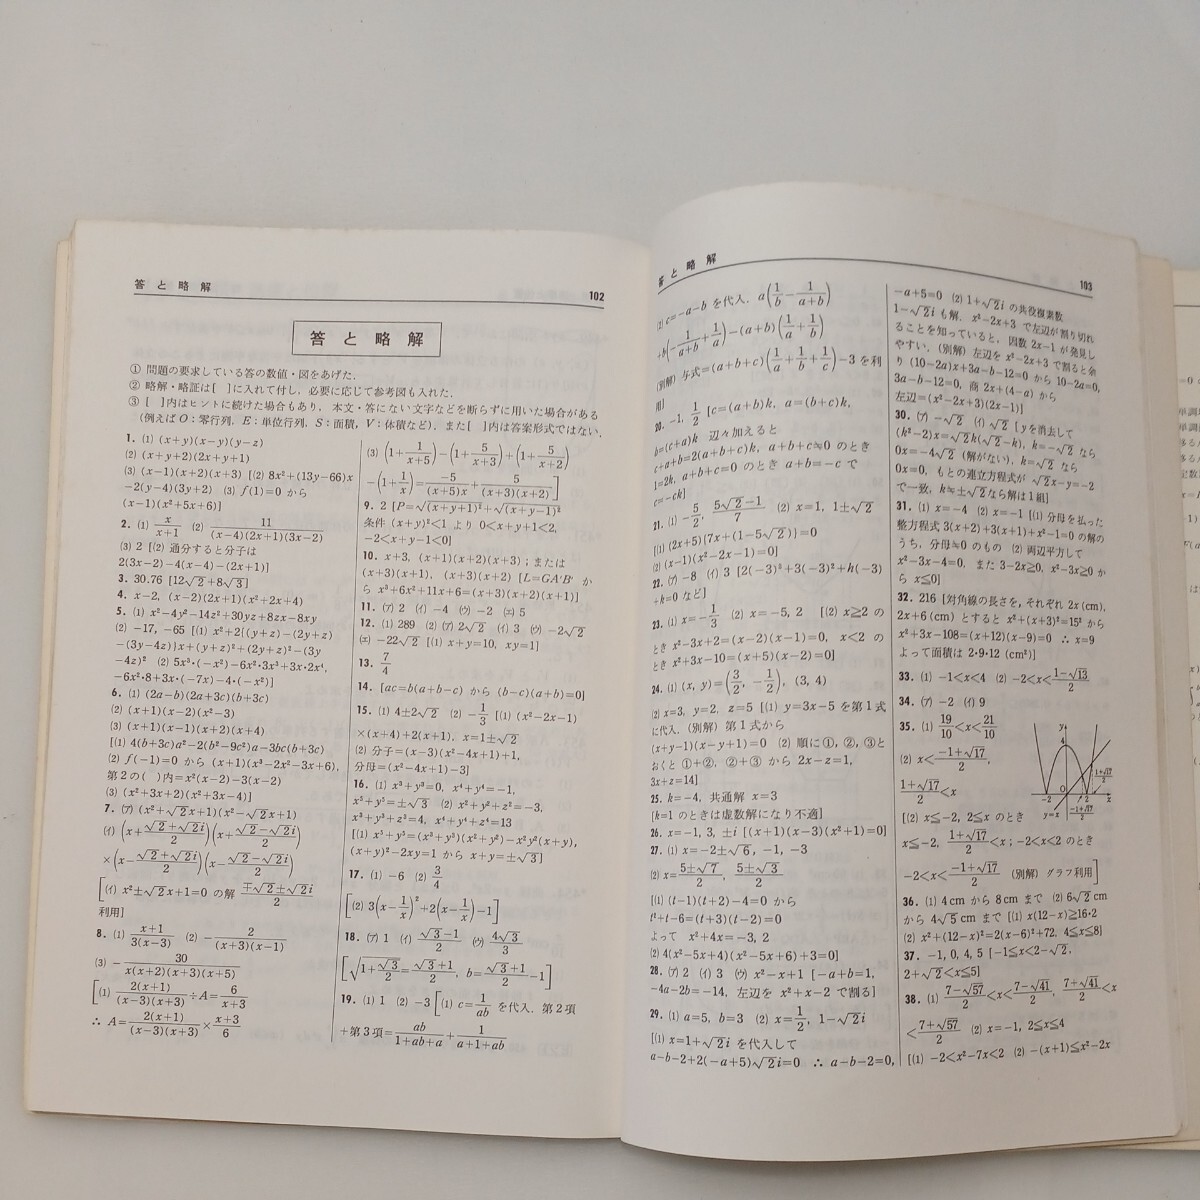 答と略解
102
答と略解
① 問題の要求している答の数値・図をあげた.
② 略解・略証は[ ]に入れて付し,必要に応じて参考図も入れた.
③ [ ]内はヒントに続けた場合もあり,本文・答にない文字などを断らずに用いた場合がある
(例えばO:零行列,E:単位行列,S:面積,V:体積など).また[ ]内は答案形式ではない.
1. (1) (x+y)(x−y)(y−z)
(2) (x+y+2)(2x+y+1)
(3) (x−1)(x+2)(x+3) [(2) 8x²+(13y−66)x
−2(y−4)(3y+2) (3) f(1)=0 から
(x−1)(x²+5x+6)]
2. (1) x/(x+1) (2) 11/((x−4)(2x+1)(3x−2))
(3) 2 [(2) 通分すると分子は
2(3x−2)−4(x−4)−(2x+1)]
3. 30.76 [12√2+8√3]
4. x−2, (x−2)(2x+1)(x²+2x+4)
5. (1) x²−4y²−14z²+30yz+8zx−8xy
(2) −17, −65 [(1) x²+2{(y+z)−(2y+z)
−(3y−4z)}x+(y+z)²+(2y+z)²−(3y
−4z)² (2) 5x³·(−x²)−6x²·3x³+3x·2x⁴,
−6x²·8+3x·(−7x)−4·(−x²)]
6. (1) (2a−b)(2a+3c)(b+3c)
(2) (x+1)(x−2)(x²−3)
(3) (x+1)(x−1)(x+2)(x+4)
[(1) 4(b+3c)a²−2(b²−9c²)a−3bc(b+3c)
(2) f(−1)=0 から (x+1)(x³−2x²−3x+6),
第2の( )内=x²(x−2)−3(x−2)
(3) (x²+3x+2)(x²+3x−4)]
7. (ア) (x²+√2x+1)(x²−√2x+1)
(イ) (x+(√2+√2i)/2)(x+(√2−√2i)/2)
×(x−(√2+√2i)/2)(x−(√2−√2i)/2)
[(イ) x²±√2x+1=0 の解 (∓√2±√2i)/2
利用]
8. (1) (x+1)/(3(x−3)) (2) −2/((x+3)(x−1))
(3) −30/(x(x+2)(x+3)(x+5))
[(1) 2(x+1)/((x−3)(x+3))÷A=6/(x+3)
∴ A=2(x+1)/((x−3)(x+3))×(x+3)/6
(3) (1+1/(x+5))−(1+5/(x+3))+(1+5/(x+2))
−(1+1/x)=−5/((x+5)x)+5/((x+3)(x+2))]
9. 2 [P=√(x+y+1)²+√(x+y−1)²
条件 (x+y)²<1 より 0<x+y+1<2,
−2<x+y−1<0]
10. x+3, (x+1)(x+2)(x+3);または
(x+3)(x+1), (x+3)(x+2) [L=GA'B' か
ら x³+6x²+11x+6=(x+3)(x+2)(x+1)]
11. (ア) 2 (イ) −4 (ウ) −2 (エ) 5
12. (1) 289 (2) (ア) 2√2 (イ) 3 (ウ) −2√2
(エ) −22√2 [(1) x+y=10, xy=1]
13. 7/4
14. [ac=b(a+b−c) から (b−c)(a+b)=0]
15. (1) 4±2√2 (2) −1/3 [(1) (x²−2x−1)
×(x+4)+2(x+1), x=1±√2
(2) 分子=(x−3)(x²−4x+1)+1,
分母=(x²−4x+1)−3]
16. (1) x³+y³=0, x⁴+y⁴=−1,
x⁵+y⁵=±√3 (2) x²+y²+z²=−3,
x³+y³+z³=4, x⁴+y⁴+z⁴=13
[(1) x⁵+y⁵=(x³+y³)(x²+y²)−x²y²(x+y),
(x+y)²−2xy=1 から x+y=±√3]
17. (1) −6 (2) 3/4
[(2) 3(x−1/x)²+2(x−1/x)−1]
18. (ア) 1 (イ) (√3−1)/2 (ウ) 4√3/3
[√(1+√3/2)=(√3+1)/2, b=(√3+1)/2−1]
19. (1) 1 (2) −3 [(1) c=1/ab を代入.第2項
+第3項=ab/(1+ab+a)+1/(a+1+ab)
答と略解
103
(2) c=−a−b を代入. a(1/b−1/(a+b))
+b(−1/(a+b)+1/a)−(a+b)(1/a+1/b)
(別解) 与式=(a+b+c)(1/a+1/b+1/c)−3 を利
用]
20. −1, 1/2 [c=(a+b)k, a=(b+c)k,
b=(c+a)k 辺々加えると
c+a+b=2(a+b+c)k, a+b+c≒0 のとき
1=2k, a+b+c=0 のとき a+b=−c で
c=−ck]
21. (1) −5/2, (5√2−1)/7 (2) x=1, 1±√2
[(1) (2x+5){7x+(1−5√2)}=0
(2) (x−1)(x²−2x−1)=0]
22. (ア) −8 (イ) 3 [2(−3)³+3(−3)²+h(−3)
+k=0 など]
23. (1) x=−1/3 (2) x=−5, 2 [(2) x≧2 の
とき x²−3x+2=(x−2)(x−1)=0, x<2 の
とき x²+3x−10=(x+5)(x−2)=0]
24. (1) (x, y)=(3/2, −1/2), (3, 4)
(2) x=3, y=2, z=5 [(1) y=3x−5 を第1式
に代入.(別解) 第1式から
(x+y−1)(x−y+1)=0 (2) 順に①,②,③と
おくと ①+②, ②+③ から 2x−z=1,
3x+z=14]
25. k=−4, 共通解 x=3
[k=1 のときは虚数解になり不適]
26. x=−1, 3, ±i [(x+1)(x−3)(x²+1)=0]
27. (1) x=−2±√6, −1, −3
(2) x=(5±√7)/2, (5±√3)/2
[(1) (t−1)(t+2)−4=0 から
t²+t−6=(t+3)(t−2)=0
よって x²+4x=−3, 2
(2) 4(x²−5x+4)(x²−5x+6)+3=0]
28. (ア) 2 (イ) 3 (ウ) x²−x+1 [−a+b=1,
−4a−2b=−14, 左辺を x²+x−2 で割る]
29. (1) a=5, b=3 (2) x=1/2, 1−√2i
[(1) x=1+√2i を代入して
a−b−2+2(−a+5)√2i=0 ∴ a−b−2=0,
−a+5=0 (2) 1+√2i の共役複素数
1−√2i も解. x²−2x+3 で左辺が割り切れ
ることを知っていると,因数 2x−1 が発見し
やすい.(別解) 左辺を x²−2x+3 で割ると余
り (10−2a)x+3a−b−12=0 から 10−2a=0,
3a−b−12=0, 商 2x+(4−a) から
左辺=(x²−2x+3)(2x−1)]
30. (ア) −√2 (イ) √2 [yを消去して
(k²−2)x=√2k(√2−k), k=−√2 なら
0x=−4√2 (解がない), k=√2 なら
0x=0, もとの連立方程式が √2x−y=−2
で一致, k≒±√2なら解は1組]
31. (1) x=−4 (2) x=−1 [(1) 分母を払った
整方程式 3(x+2)+3(x+1)+x²−1=0 の解の
うち,分母≒0 のもの (2) 両辺平方して
x²−3x−4=0, また 3−2x≧0, x²−3x≧0 か
ら x≦0]
32. 216 [対角線の長さを,それぞれ 2x(cm),
2x+6(cm) とすると x²+(x+3)²=15² から
x²+3x−108=(x+12)(x−9)=0 ∴ x=9
よって面積は 2·9·12 (cm²)]
33. (1) −1<x<4 (2) −2<x<(1−√13)/2
34. (ア) −2 (イ) 9
35. (1) 19/10<x<21/10
(2) x<(−1+√17)/2,
(1+√17)/2<x
[(2) x≦−2, 2≦x のとき
x≦−2, (1+√17)/2<x;−2<x<2 のとき
−2<x<(−1+√17)/2 (別解) グラフ利用]
y
4
−2
0
2
x
y=x
(1+√17)/2
(−1+√17)/2
36. (1) 4cm から 8cm まで (2) 6√2cm
から 4√5cm まで [(1) x(12−x)≧16·2
(2) x²+(12−x)²=2(x−6)²+72, 4≦x≦8]
37. −1, 0, 4, 5 [−1≦x<2−√2,
2+√2<x≦5]
38. (1) (7−√57)/2<x<(7−√41)/2, (7+√41)/2<x
<(7+√57)/2 (2) x=−1, 2≦x≦4
[(1) −2<x²−7x<2 (2) −(x+1)≦x²−2x